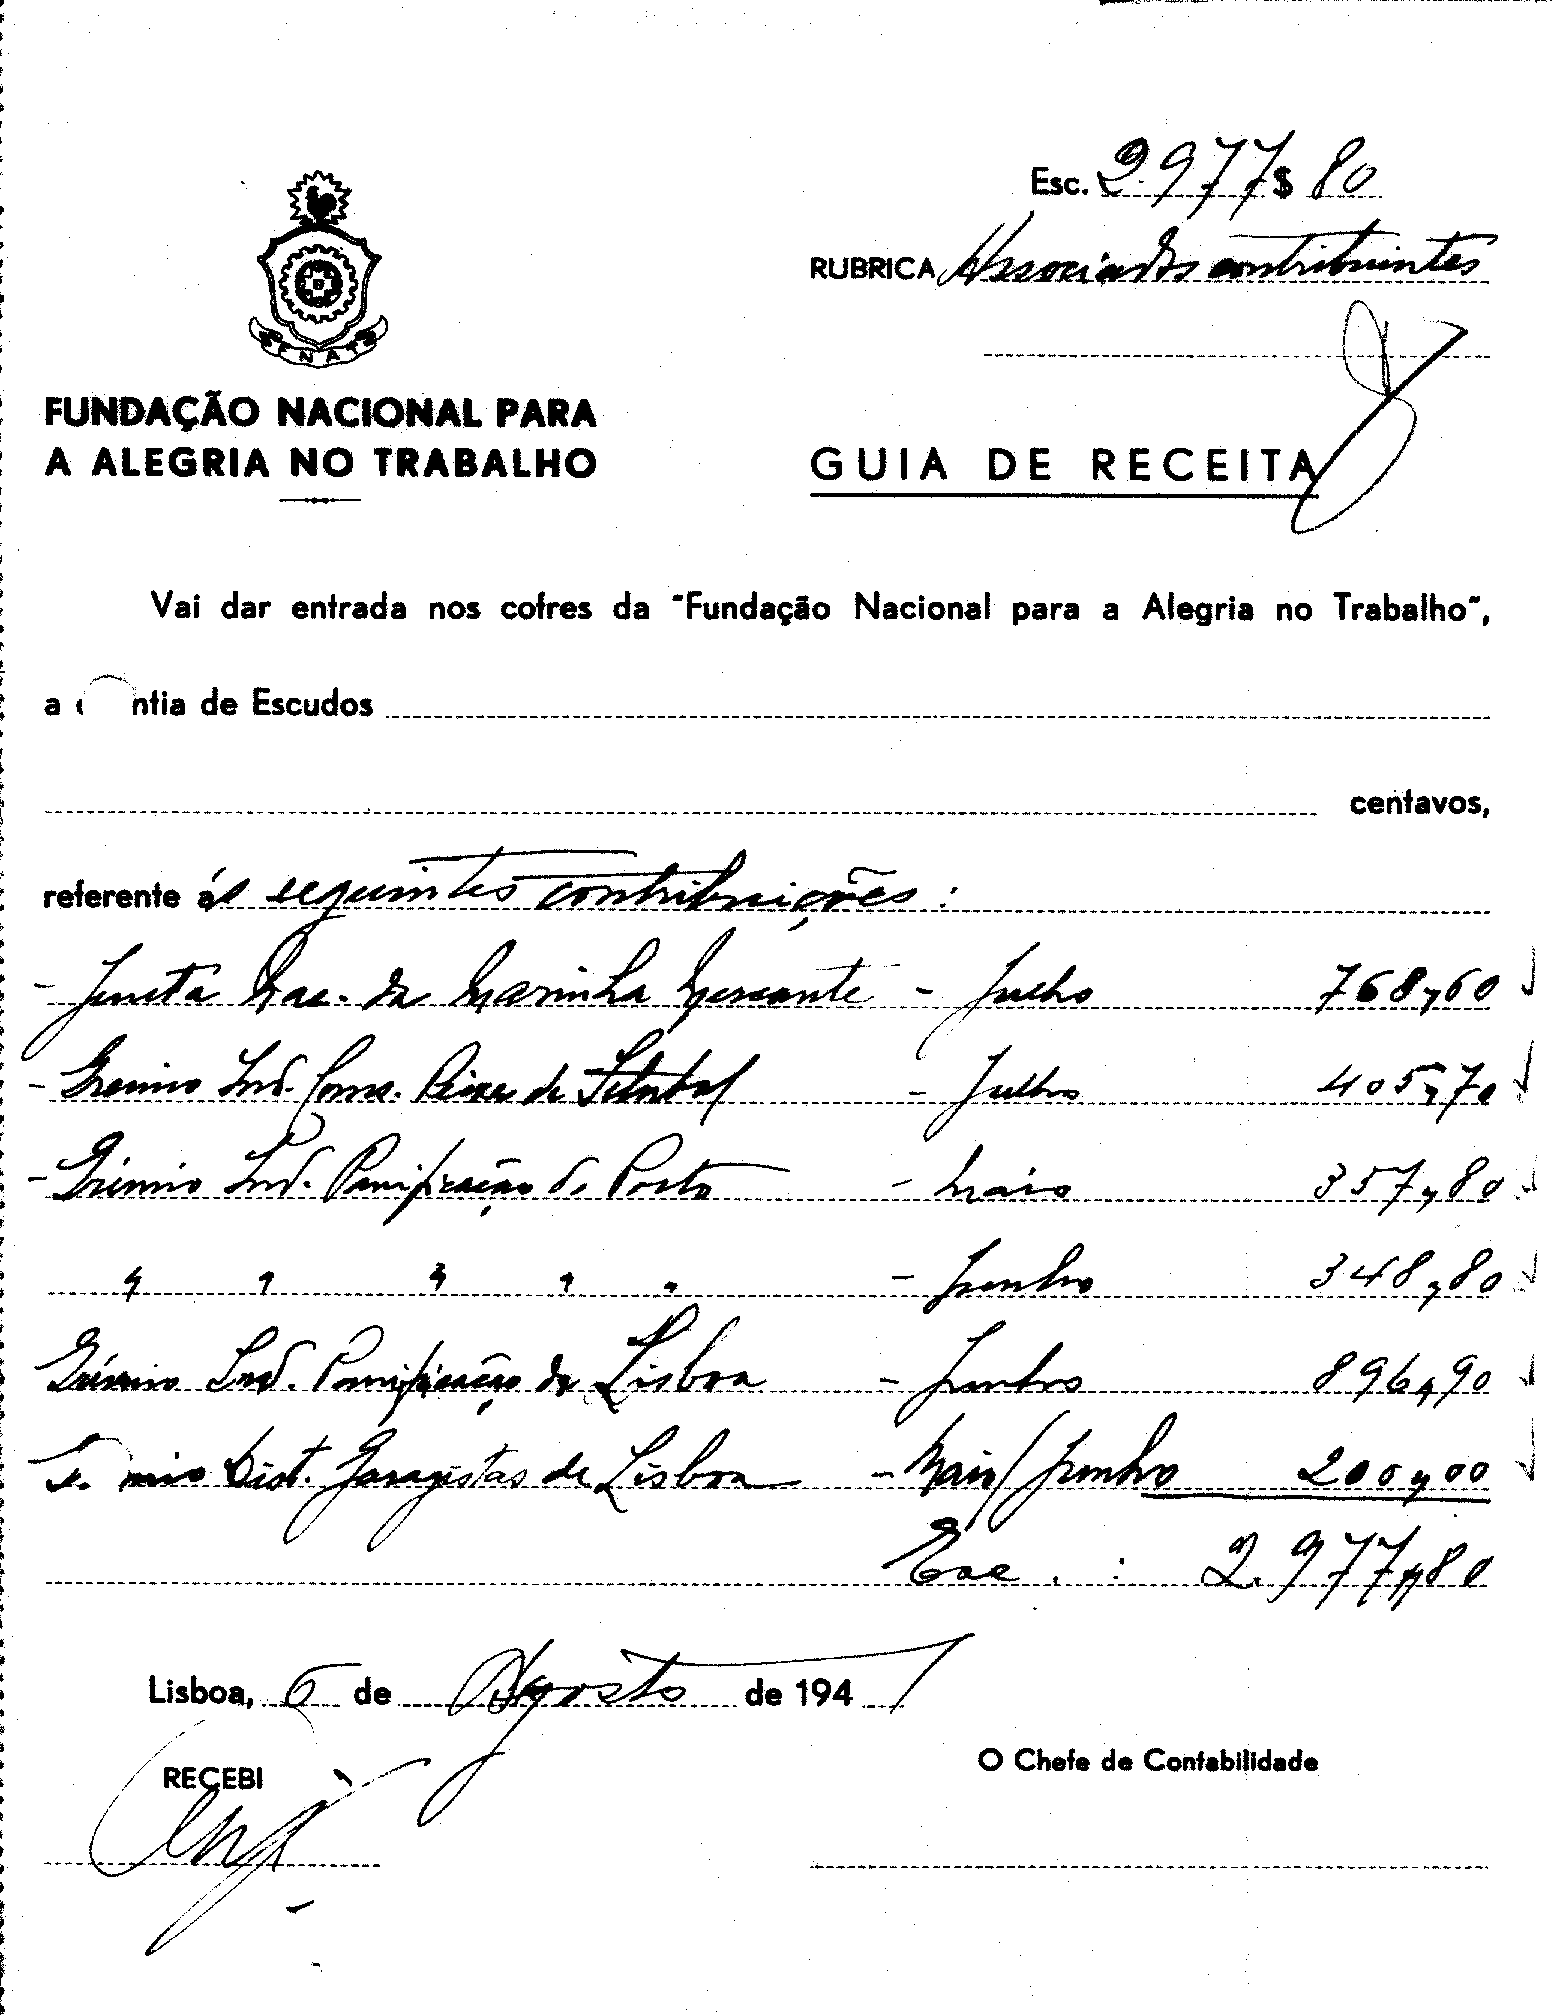 Esc. 2.977$80
RUBRICA Associados contribuintes
FENAT
FUNDAÇÃO NACIONAL PARA
A ALEGRIA NO TRABALHO
GUIA DE RECEITA
Vai dar entrada nos cofres da "Fundação Nacional para a Alegria no Trabalho",
a ntia de Escudos
centavos,
referente ás seguintes contribuições:
- Junta Nac. da Marinha Mercante - Julho 768,60
- Grémio Ind. Cons. Peixe de Setubal - Julho 405,70
- Grémio Ind. Panificação do Porto - Maio 357,80
" " " " " - Junho 348,80
Grémio Ind. Panificação de Lisboa - Junho 896,90
G. mio Dist. Garagistas de Lisboa - Maio/Junho 200,00
Esc. : 2.977,80
Lisboa, 6 de Agosto de 194
RECEBI
O Chefe de Contabilidade